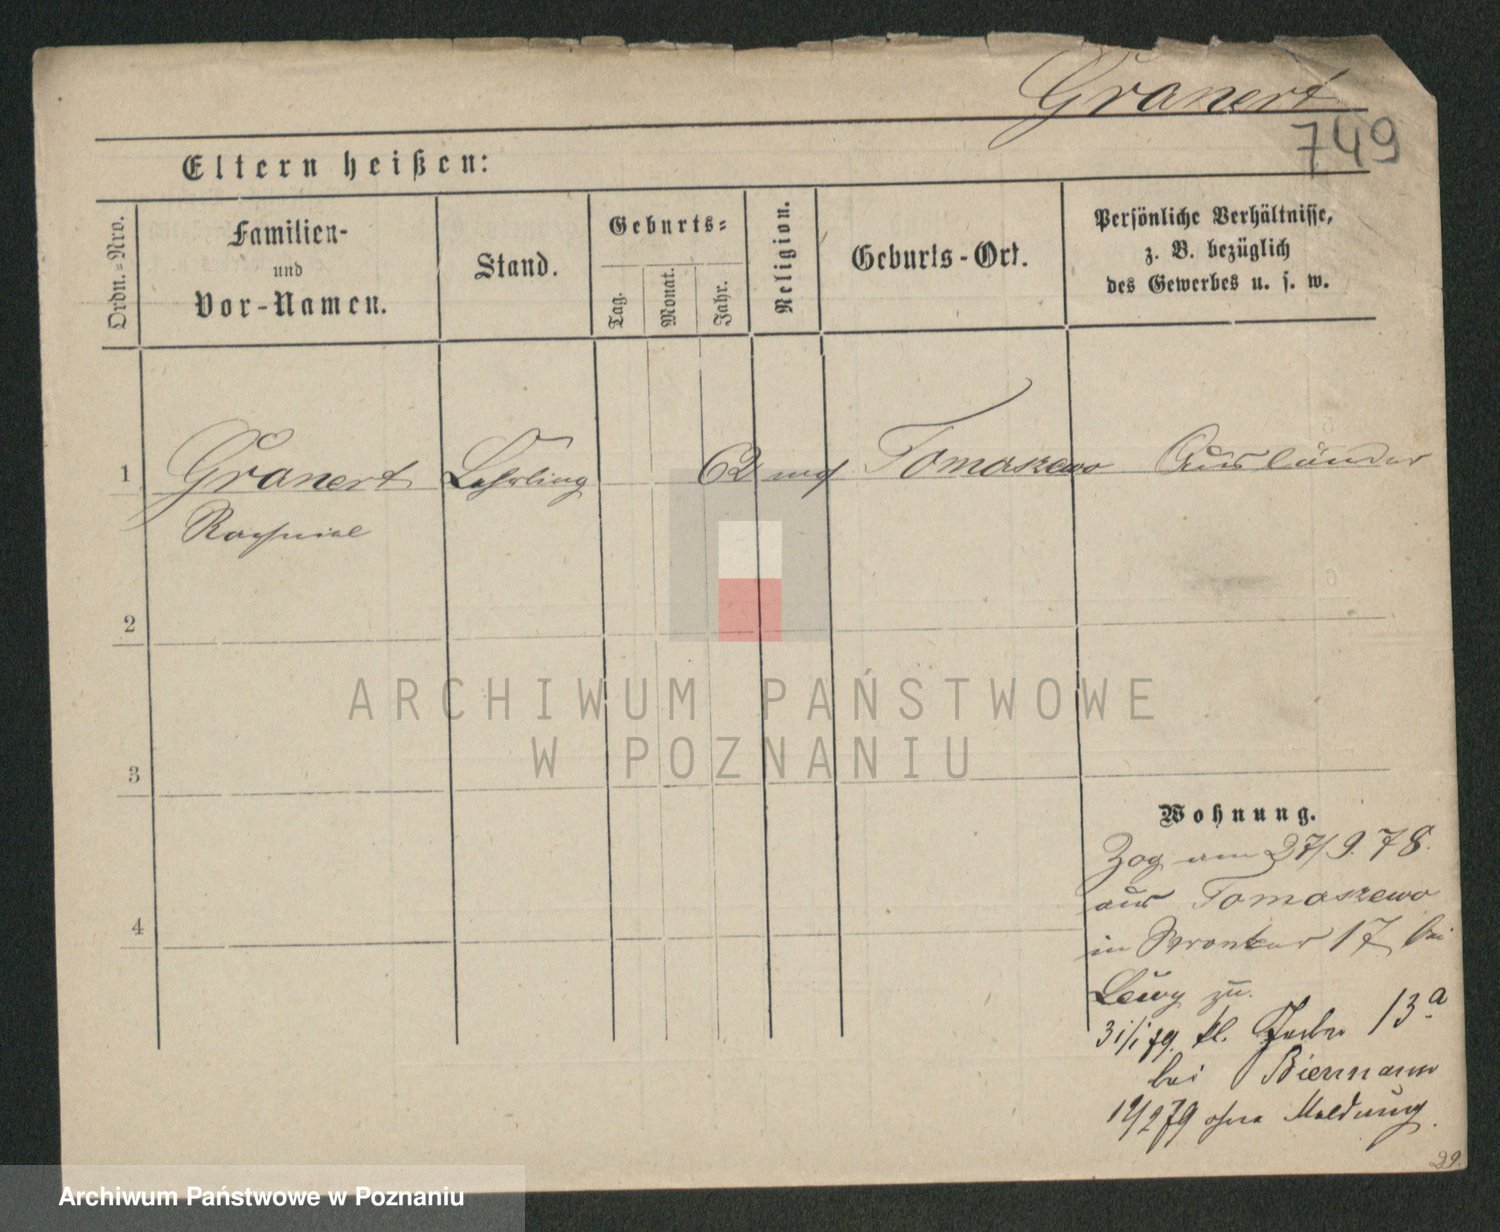 Granert
749
Eltern heißen:
Ordn.=Nro.
Familien-
und
Vor-Namen.
Stand.
Geburts=
Tag.
Monat.
Jahr.
Religion.
Geburts-Ort.
Persönliche Verhältnisse,
z. B. bezüglich
des Gewerbes u. s. w.
1 Granert Lehrling 62 Tomaszewo Ausländer
2
3
4
Wohnung.
Zog am 27/9. 78.
aus Tomaszewo
in Wronker 17 bei
Lewy zu.
31/1 79. kl. Gerber 13a
bei Biermann
ohne Meldung.
29.
ARCHIWUM PAŃSTWOWE
W POZNANIU
Archiwum Państwowe w Poznaniu